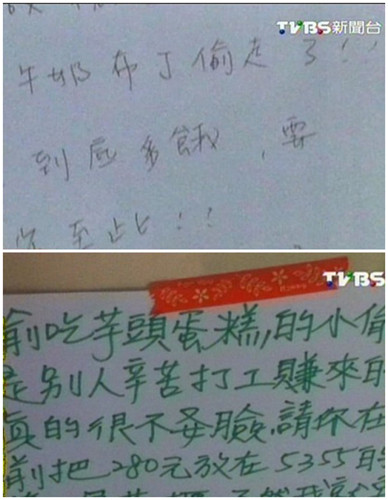 TVBS新聞台
牛奶布丁偷走了!!
到底多餓,要
至此!!
TVBS
偷吃芋頭蛋糕,的小偷
是別人辛苦打工賺來的
真的很不要臉,請你在
前把280元放在5355的